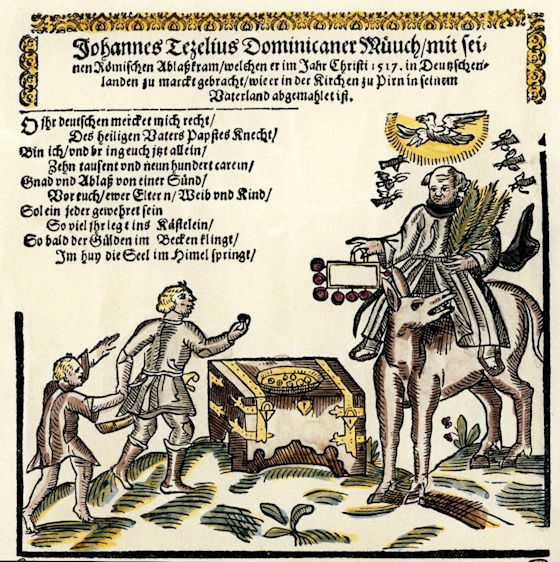 Johannes Tezelius Dominicaner Münch/ mit sei-
nen Römischen Ablaßkram/ welchen er im Jahr Christi 1517. in Deutzschen-
landen zu marckt gebracht/ wie er in der Kirchen zu Pirn in seinem
Vaterland abgemahlet ist.
O Ihr deutschen mercket mich recht/
Des heiligen Vaters Papstes Knecht/
Bin ich/ vnd br ing euch jtzt allein/
Zehn tausent vnd neun hundert carein/
Gnad vnd Ablaß von einer Sünd/
Vor euch/ ewer Elter n/ Weib vnd Kind/
Sol ein jeder gewehret sein
So viel jhr legt ins Kästelein/
So bald der Gülden im Becken klingt/
Im huy die Seel im Himel springt/